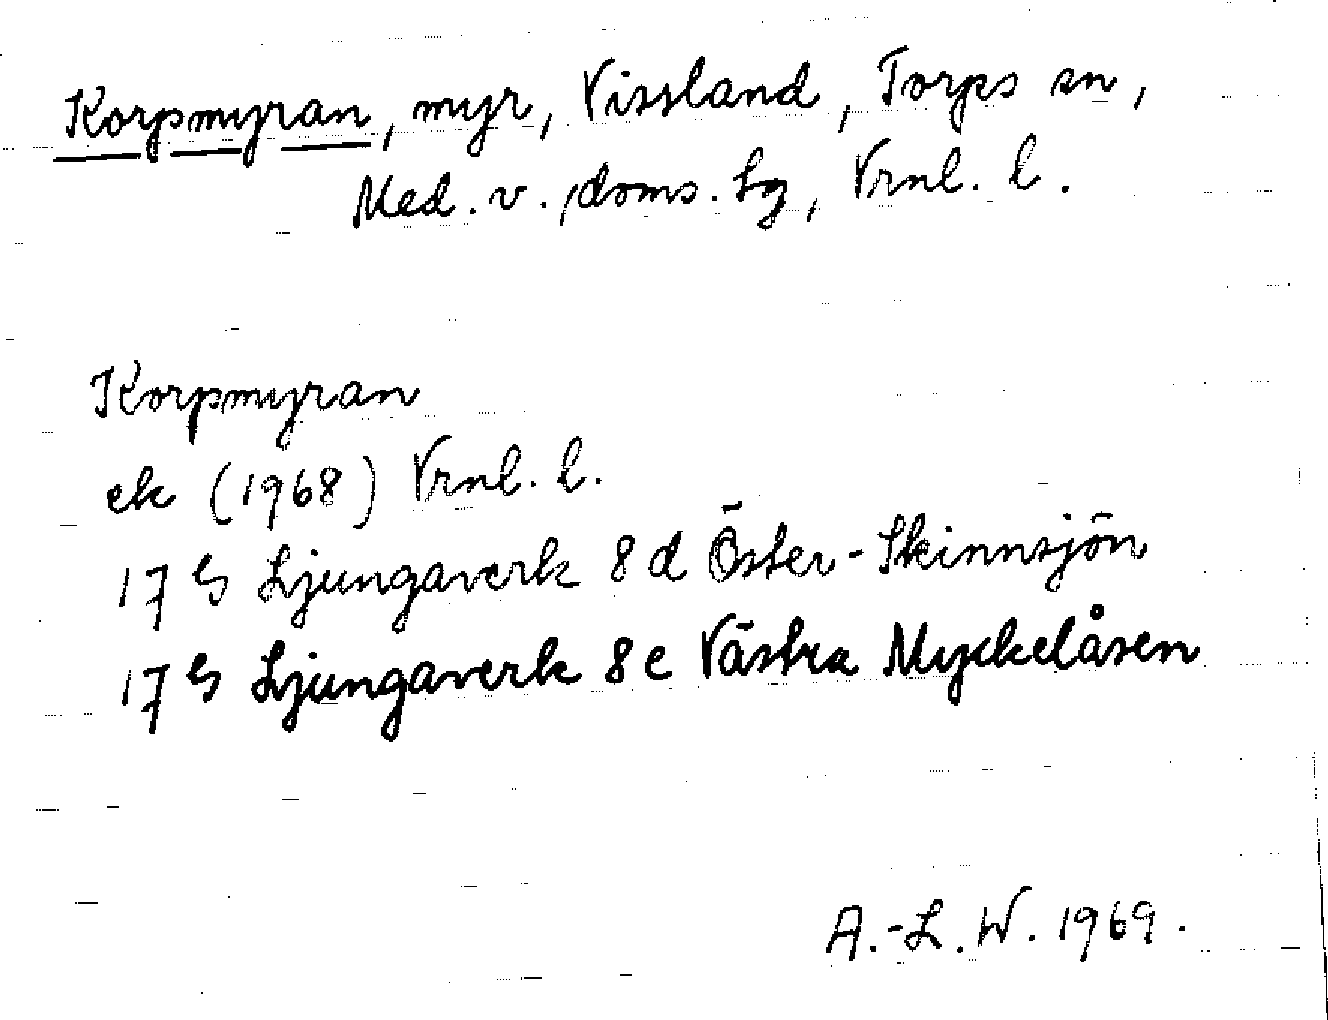 Korpmyran, myr, Vissland, Torps sn,
Med. v. doms. hg, Vrnl. l.
Korpmyran
ek (1968) Vrnl. l.
17 G Ljungaverk 8 d Öster-Skinnsjön
17 G Ljungaverk 8 e Västra Myckelåsen
A.-L. W. 1969.